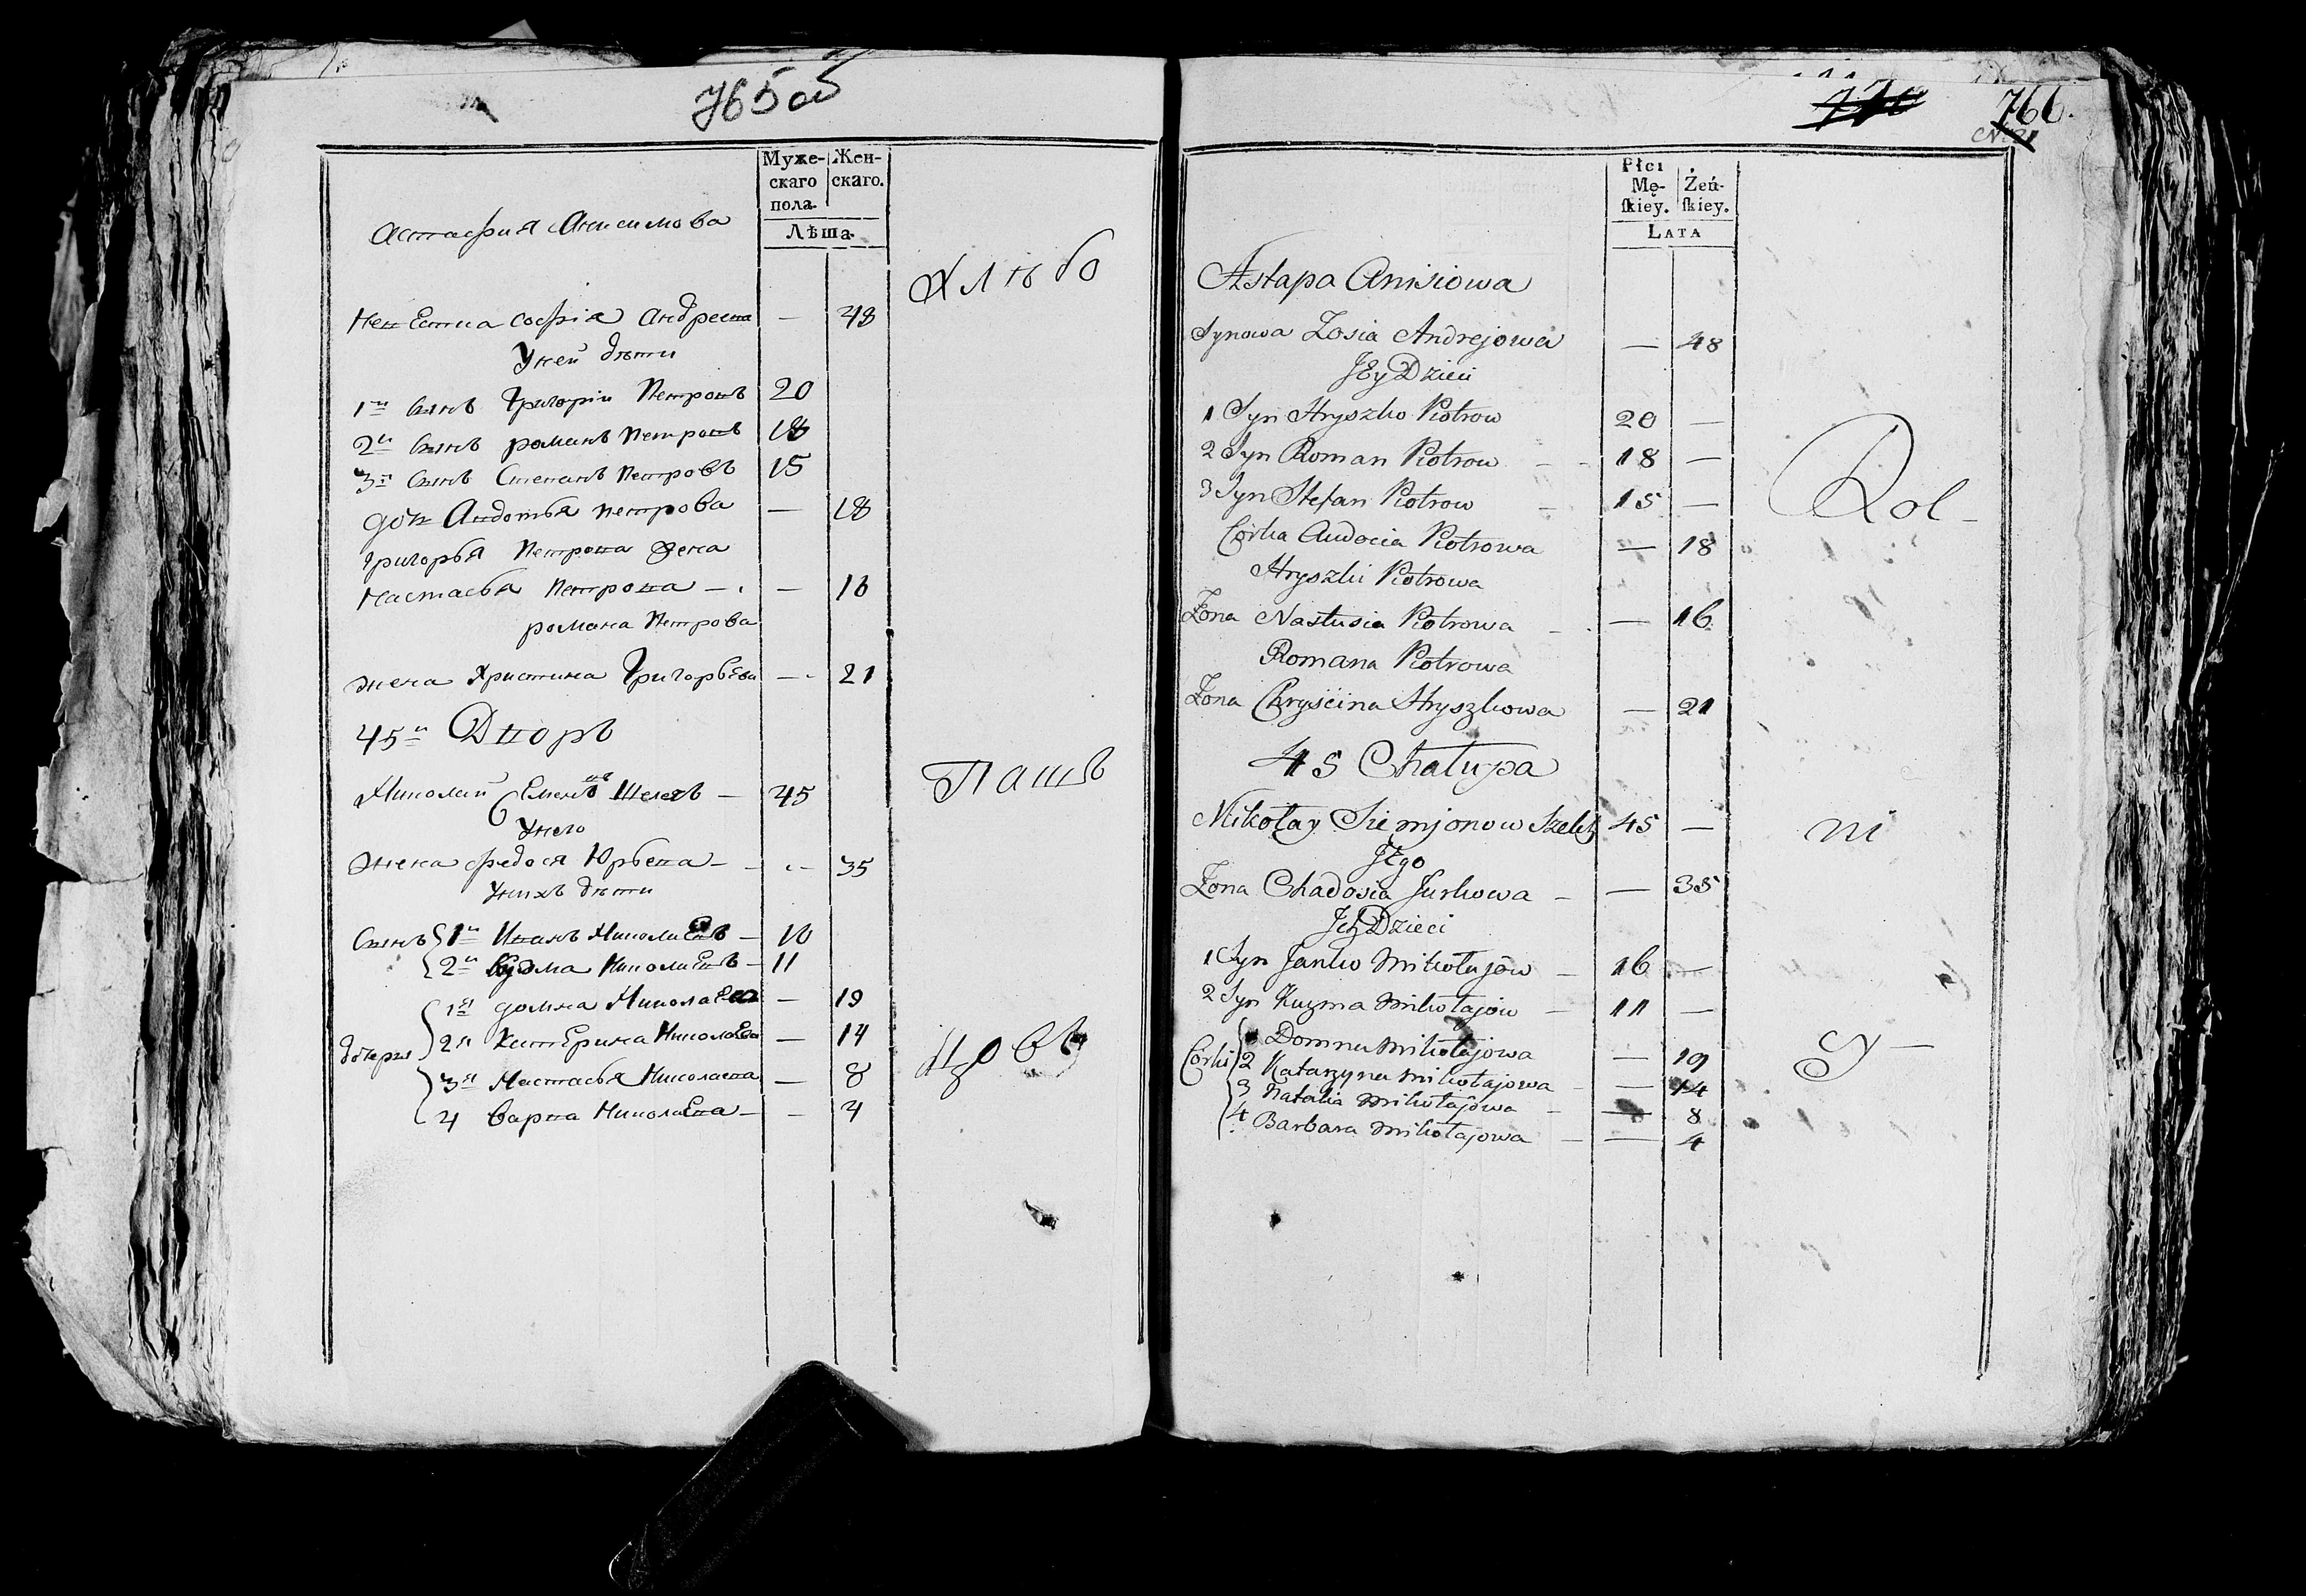 765 об
Муже-
скаго
пола.
Жен-
скаго.
Лѣта.
Астафия Анисимова
Хлѣбо
Невестка Софiя Андреева — 48
У ней дѣти
1й сынъ Григорiй Петровъ 20
2й сынъ романъ Петровъ 18
3й сынъ Степанъ Петровъ 15
дочь Авдотья Петрова — 18
Григорья Петрова жена
Настасья Петрова — — 16
романа Петрова
жена Христина Григорьева — 21
45й Дворъ
Пашъ
Николай Семеновъ Шелегъ — 45
У него
Жена Федося Юрьева — — 35
У нихъ дѣти
Сынъ 1й Иванъ Николаевъ — 16
2й Кузма Николаевъ — 11
дочерья 1я домна Николаева — 19
2я Катерина Николаева — 14
цовъ
3я Настасья Николаева — 8
4 Варва Николаева — — 4
770 766.
Płci
Mę-
ſkiey.
Żeń-
ſkiey.
LATA
Astapa Anisiowa
Synowa Zosia Andrejowa — 48
JEy Dzieci
1 Syn Hryszko Piotrow 20 —
2 Syn Roman Piotrow 18 —
Rol-
3 Syn Stefan Piotrow 15 —
Corka Audocia Piotrowa — 18
Hryszki Piotrowa
Zona Nastusia Piotrowa — 16
Romana Piotrowa
Zona Chryscina Hryszkowa — 21
45 Chałupa
Mikołay Siemjonow Szeleh 45 —
ni
JEgo
Zona Chadosia Jurkowa — — 35
Jch Dzieci
1 Syn Janko Mikołajow — 16 —
2 Syn Kuzma Mikołajow — 11 —
Corki 1 Domna Mikołajowa — 19
cy —
2 Katarzyna Mikołajowa — — 14
3 Natalia Mikołajowa — — 8
4 Barbara Mikołajowa — — 4